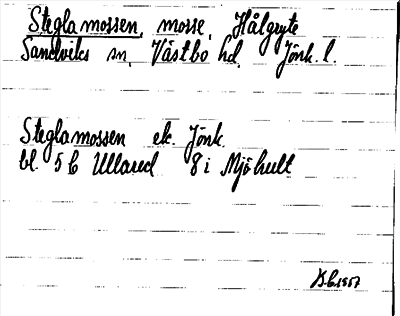 Steglamossen, mosse, Hålgryte
Sandviks sn, Västbo hd, Jönk. l.
Steglamossen ek. Jönk.
bl. 5 C Ullared 8 i Mjöhult
1957